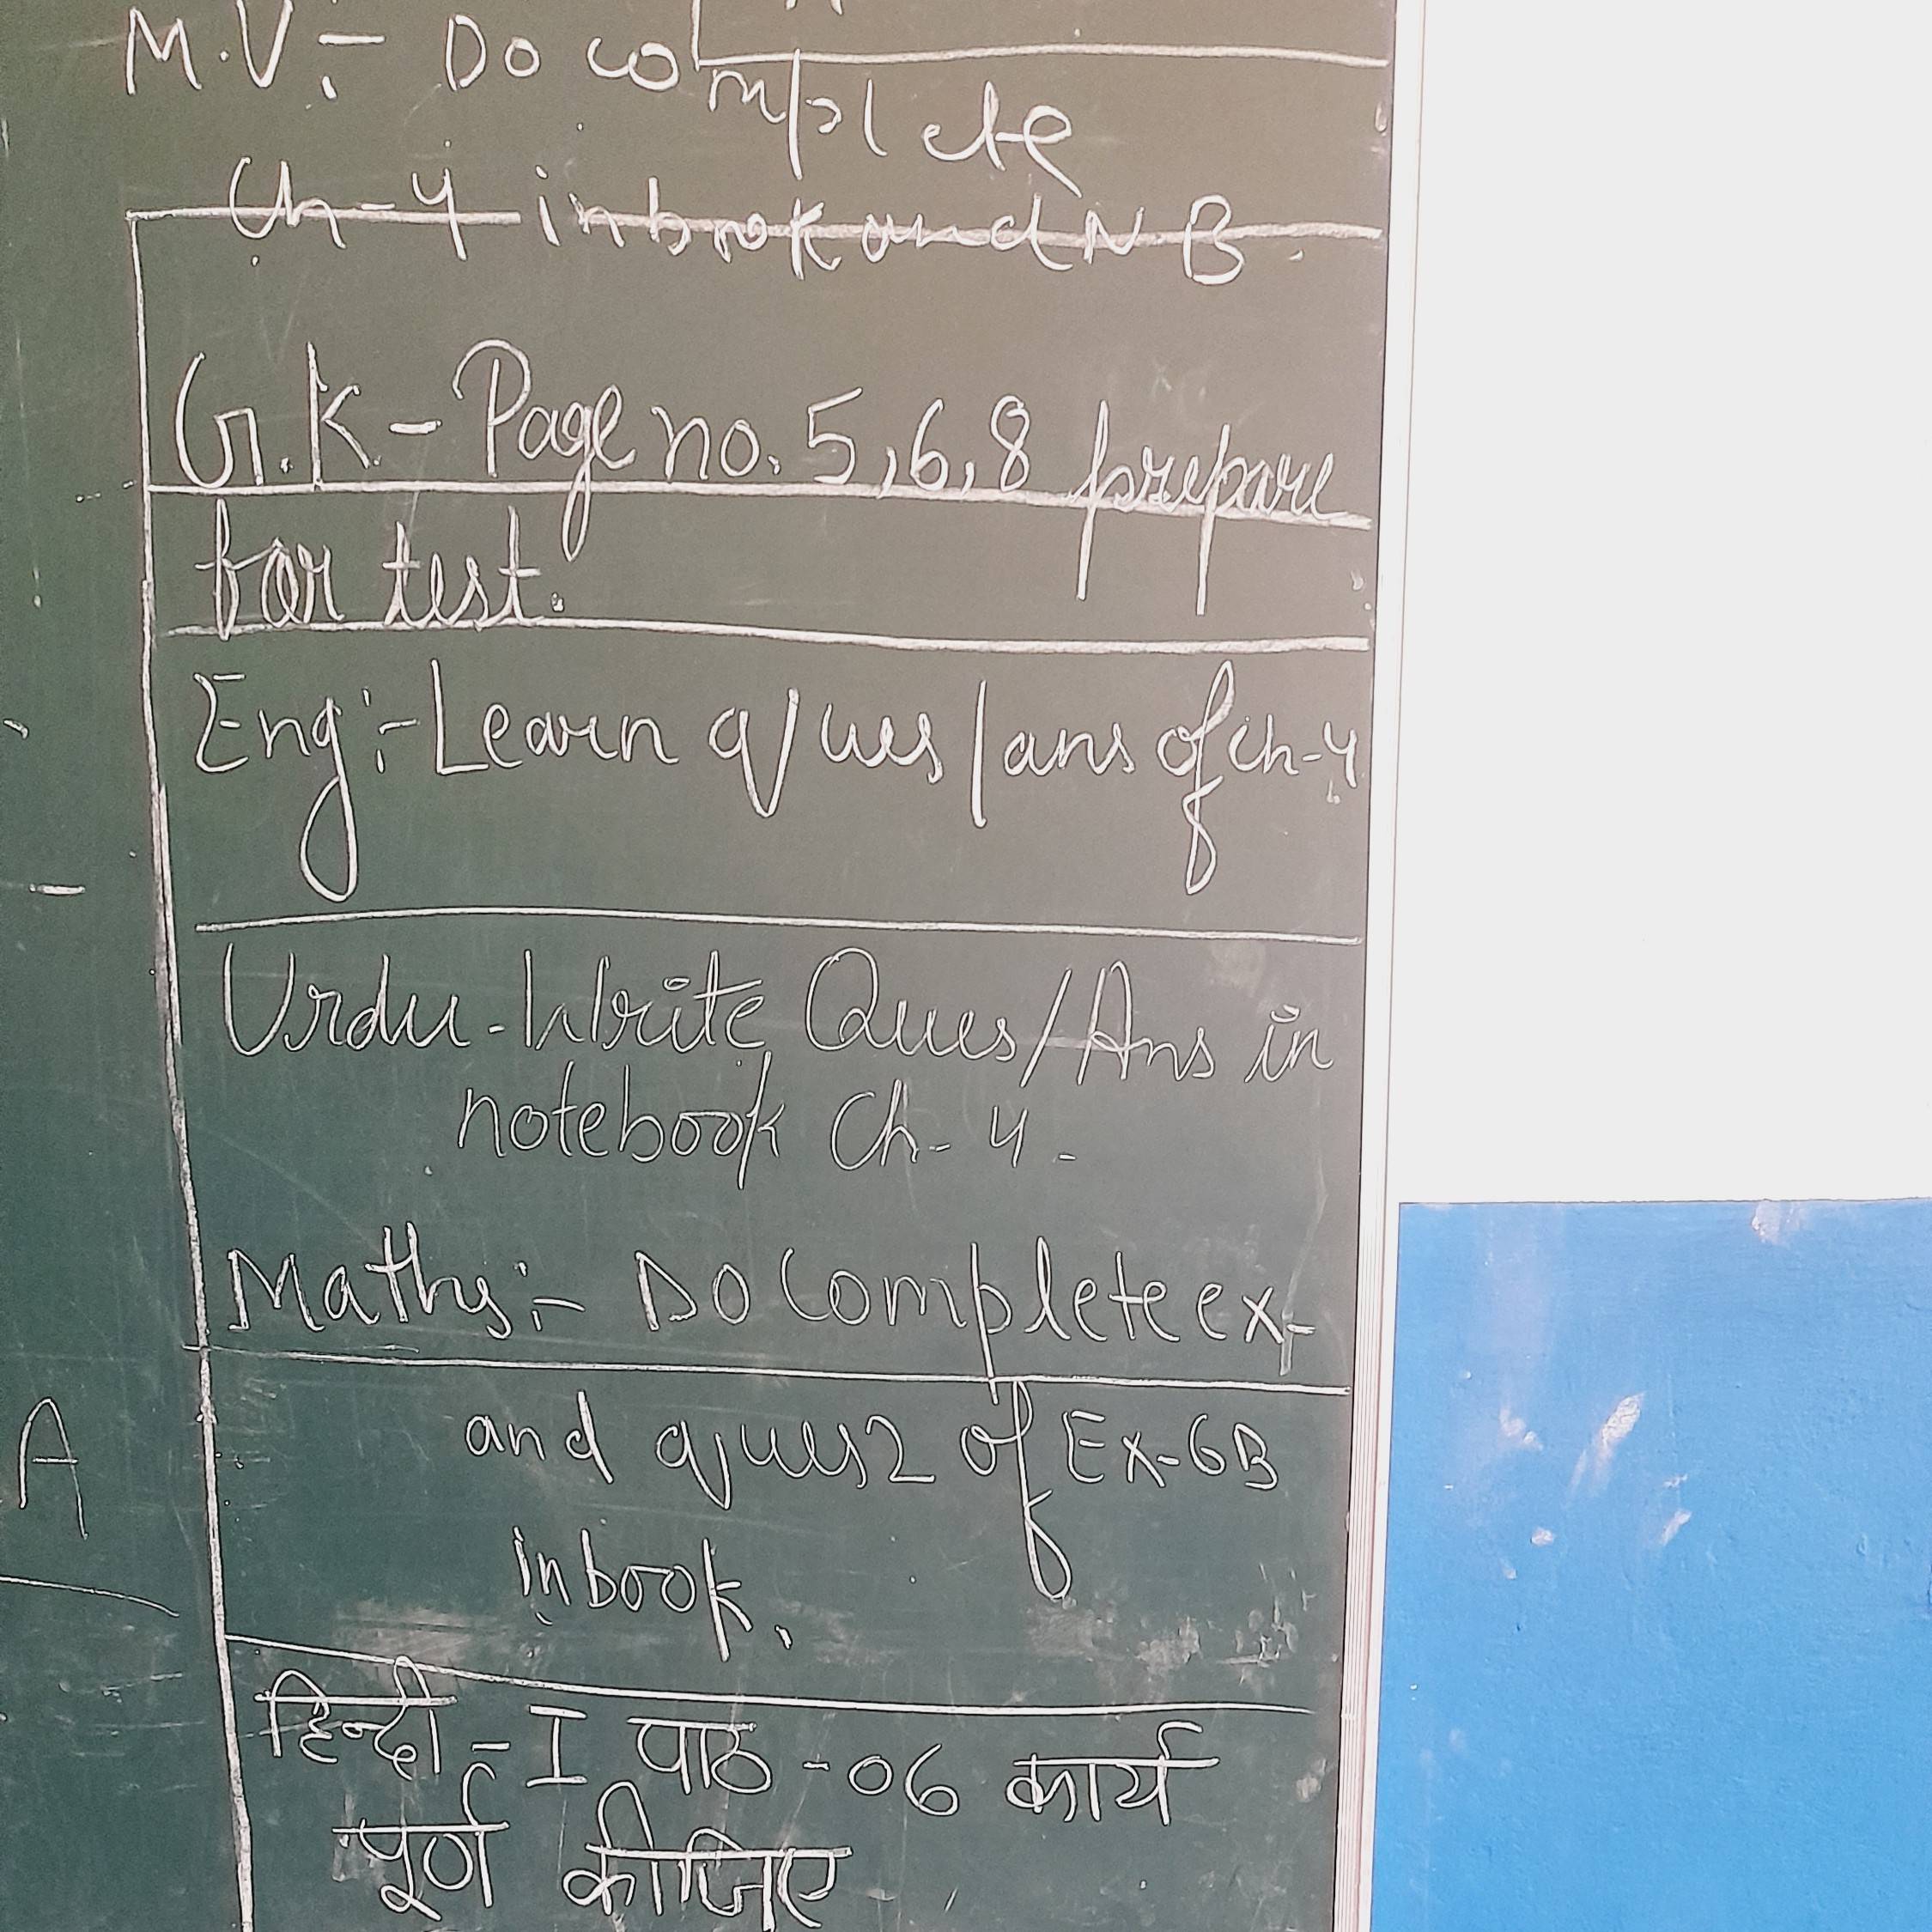 M.V:- Do complete
Ch-4 in book and N B.
G.K.- Page no. 5,6,8 prepare
for test.
Eng:- Learn ques/ans of ch-4
Urdu-Write Ques/Ans in
notebook Ch-4.
Maths:- Do Complete ex-
and ques 2 of Ex-6B
in book.
A
हिन्दी - I पाठ -06 कार्य
पूर्ण कीजिए